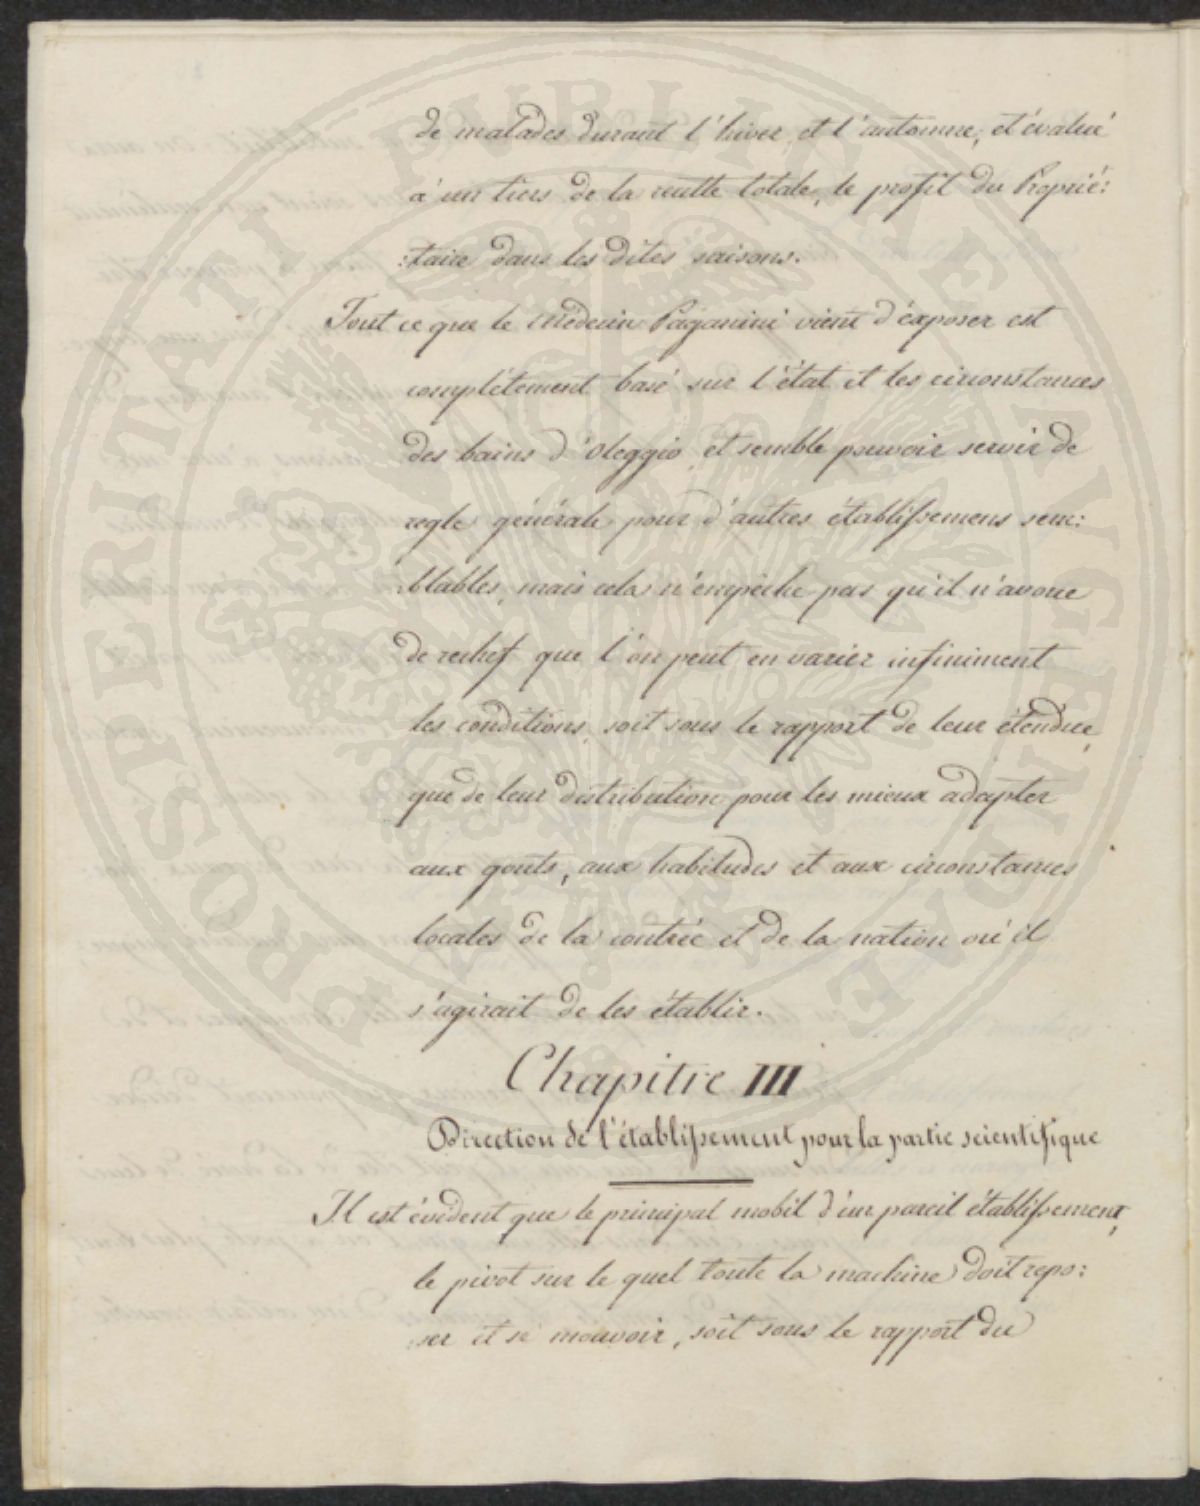 de malades durant l'hiver, et l'automne, et évalué
à un tiers de la rente totale, le profit du Proprié:
:taire dans les dites saisons.
Tout ce que le Médecin Paganini vient d'éxposer est
complétement basé sur l'état et les circonstances
des bains d'Oleggio, et semble pouvoir servir de
regle générale pour d'autres établissemens sem:
:blables, mais cela n'empèche pas qu'il n'avoue
de rechef que l'on peut en varier infiniment
les conditions, soit sous le rapport de leur étendue,
que de leur distribution pour les mieux adapter
aux gouts, aux habitudes et aux circonstances
locales de la contrée et de la nation où il
s'agirait de les établir.
Chapitre III
Direction de l'établissement pour la partie scientifique
Il est évident que le principal mobil d'un pareil établissement,
le pivot sur le quel toute la machine doit repo:
:ser et se mouvoir, soit sous le rapport du
PROSPERITATI PUBLICAE AUGENDAE